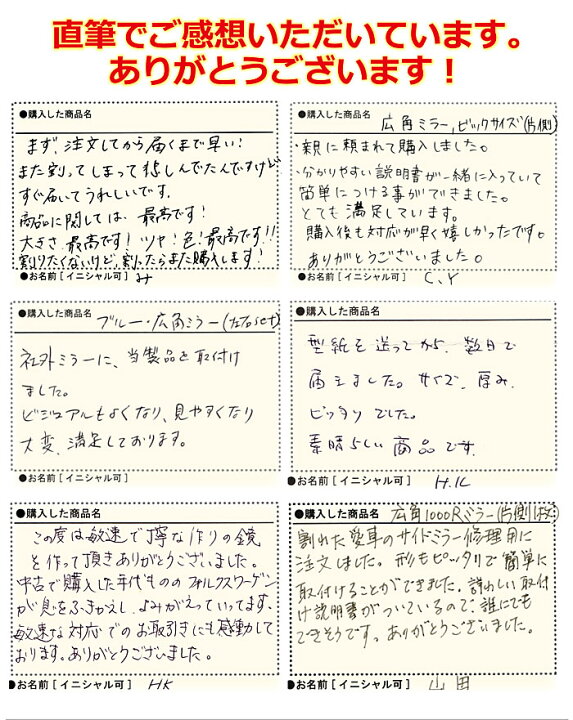 直筆でご感想いただいています。
ありがとうございます！
●購入した商品名
まず、注文してから届くまで早い!
また割ってしまって悲しんでたんですけど
すぐ届いてうれしいです。
商品に関しては、最高です!
大きさ、最高です! ツヤ! 色! 最高です!!
割りたくないけど、割ったらまた購入します!
●お名前［イニシャル可］ み
●購入した商品名 広角ミラー,ビックサイズ(片側)
・親に頼まれて購入しました。
・分かりやすい説明書が一緒に入っていて
簡単につける事ができました。
とても満足しています。
購入後も対応が早く嬉しかったです。
ありがとうございました。
●お名前［イニシャル可］ C.Y
●購入した商品名 ブルー・広角ミラー(左右set)
社外ミラーに、当製品を取付け
ました。
ビジュアルもよくなり、見やすくなり
大変、満足しております。
●お名前［イニシャル可］
●購入した商品名
型紙を送ってから、数日で
届きました。サイズ、厚み、
ピッタリでした。
素晴らしい商品です。
●お名前［イニシャル可］ H.K
●購入した商品名
この度は敏速で丁寧な作りの鏡
を作って頂きありがとうございました。
中古で購入した年代もののフォルクスワーゲン
が息をふきかえし、よみがえっていってます、
敏速な対応でのお取引きにも感動して
おります。ありがとうございました。
●お名前［イニシャル可］ HK
●購入した商品名 広角1000Rミラー(片側1枚)
割れた愛車のサイドミラー修理用に
注文しました。形もピッタリで簡単に
取付けることができました。詳しい取付
け説明書がついているので、誰にでも
できそうです。ありがとうございました。
●お名前［イニシャル可］ 山田